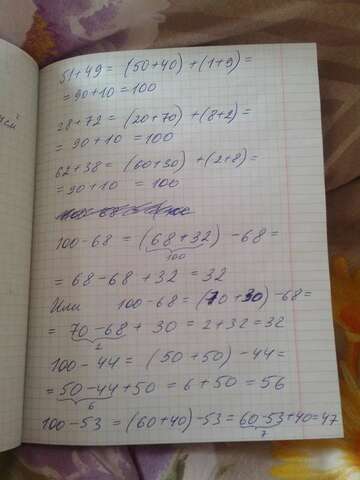 51+49 = (50+40)+(1+9)=
= 90+10 = 100
28+72 = (20+70)+(8+2)=
= 90+10 = 100
62+38 = (60+30)+(2+8)=
= 90+10 = 100
100-68 = (68+32)-68=
100
= 68-68+32 = 32
Или 100-68 = (70+30)-68=
= 70-68+30 = 2+32=32
2
100-44 = (50+50)-44=
= 50-44+50 = 6+50=56
6
100-53 = (60+40)-53= 60-53+40=47
7